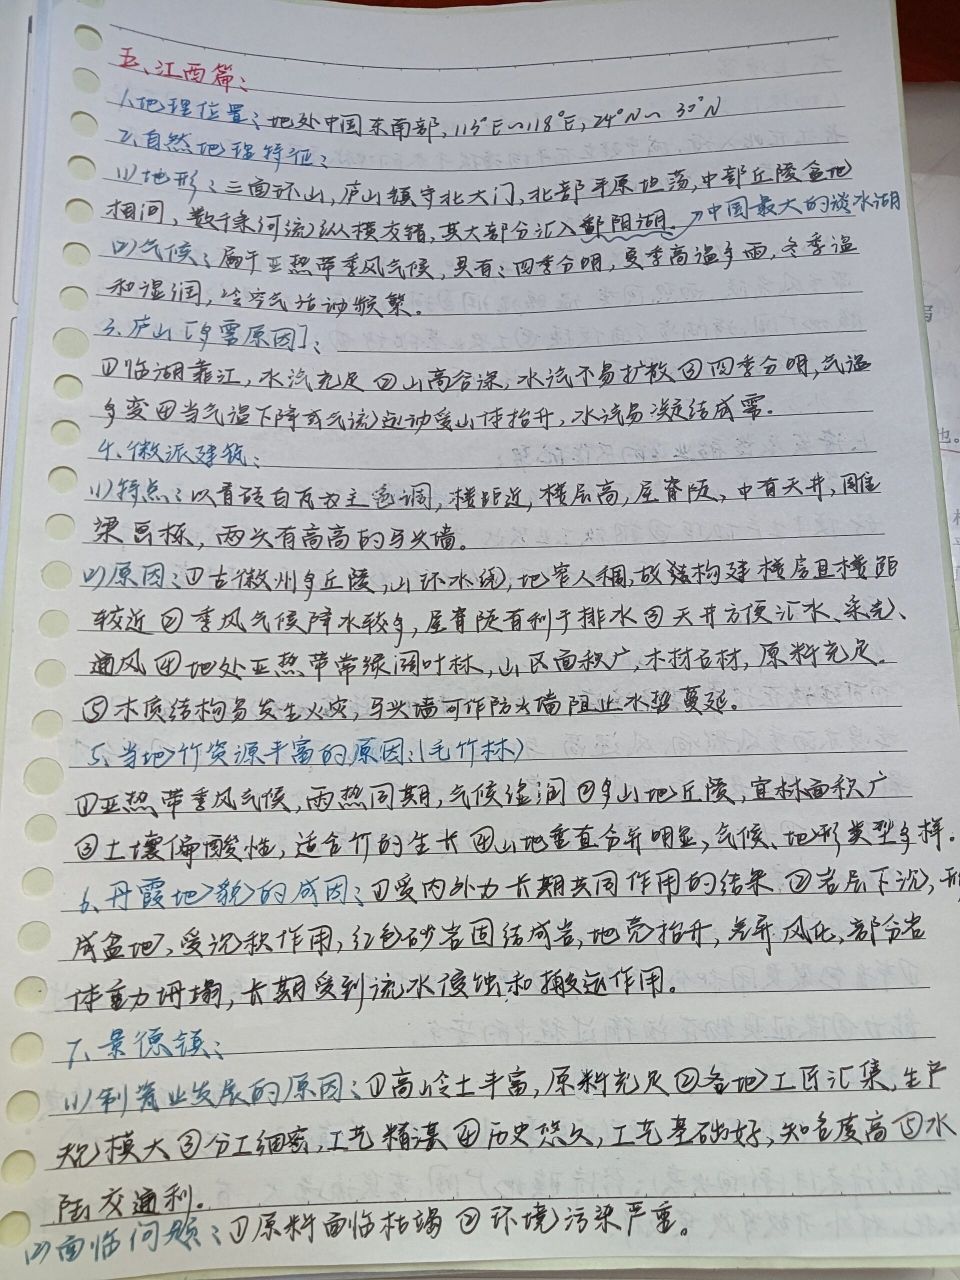 五、江西篇：
1.地理位置：地处中国东南部，113°E～118°E，24°N～30°N
2.自然地理特征：
(1)地形：三面环山，庐山镇守北大门，北部平原坦荡，中部丘陵盆地
相间，数千条河流纵横交错，其大部分汇入鄱阳湖。→中国最大的淡水湖
(2)气候：属于亚热带季风气候，具有：四季分明，夏季高温多雨，冬季温
和湿润，冷空气活动频繁。
3.庐山[多雾原因]：
①临湖靠江，水汽充足②山高谷深，水汽不易扩散③四季分明，气温
多变④当气温下降或气流运动受山体抬升，水汽易凝结成雾。
4.徽派建筑：
(1)特点：以青砖白瓦为主色调，楼距近，楼层高，屋脊陡，中有天井，雕
梁画栋，两头有高高的马头墙。
(2)原因：①古徽州多丘陵，山环水绕，地窄人稠，故结构建楼房且楼距
较近②季风气候降水较多，屋脊陡有利于排水③天井方便汇水、采光、
通风④地处亚热带常绿阔叶林，山区面积广，木材石材，原料充足。
⑤木质结构易发生火灾，马头墙可作防火墙阻止水势蔓延。
5.当地竹资源丰富的原因：(毛竹林)
①亚热带季风气候，雨热同期，气候湿润②多山地丘陵，宜林面积广
③土壤偏酸性，适合竹的生长④山地垂直分异明显，气候、地形类型多样。
6.丹霞地貌的成因：①受内外力长期共同作用的结果②岩层下沉，形
成盆地，受沉积作用，红色砂岩固结成岩，地壳抬升，差异风化，部分岩
体重力坍塌，长期受到流水侵蚀和搬运作用。
7.景德镇：
(1)制瓷业发展的原因：①高岭土丰富，原料充足②各地工匠汇集，生产
规模大③分工细密，工艺精湛④历史悠久，工艺基础好，知名度高⑤水
陆交通利。
(2)面临问题：①原料面临枯竭②环境污染严重。